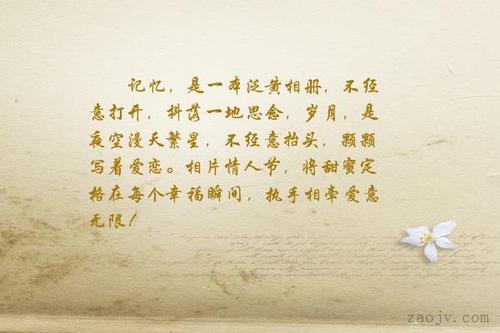 记忆，是一本泛黄相册，不经
意打开，抖落一地思念，岁月，是
夜空漫天繁星，不经意抬头，颗颗
写着爱恋。相片情人节，将甜蜜定
格在每个幸福瞬间，执手相牵爱意
无限！
zaojv.com